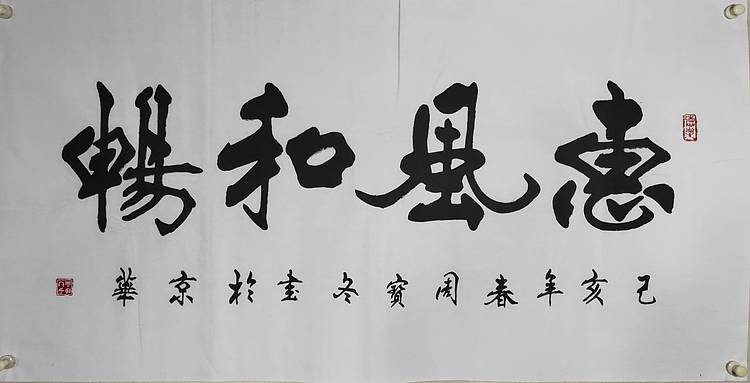 惠風和暢
己亥年春周寶冬书於京華